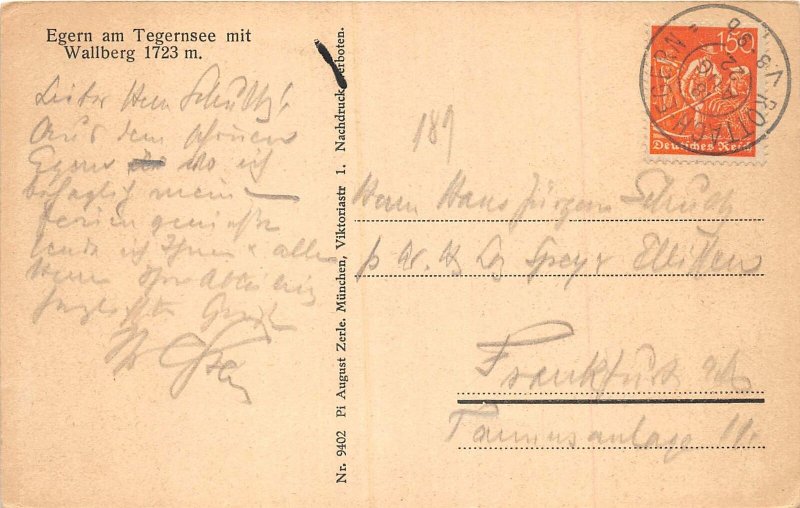 Egern am Tegernsee mit
Wallberg 1723 m.
Lieber Herr Schultz!
Aus dem schönen
Egern wo ich
behaglich meine
Ferien genieße
sende ich Ihnen & allen
Herren
Gruß
Nr. 9402 Pi August Zerle. München, Viktoriastr 1. Nachdruck verboten.
189
150
Deutsches Reich
ROTTACH-EGERN
Herrn Hans Jürgen Schultz
Speyer Ellissen
Frankfurt a/M
Taunusanlage